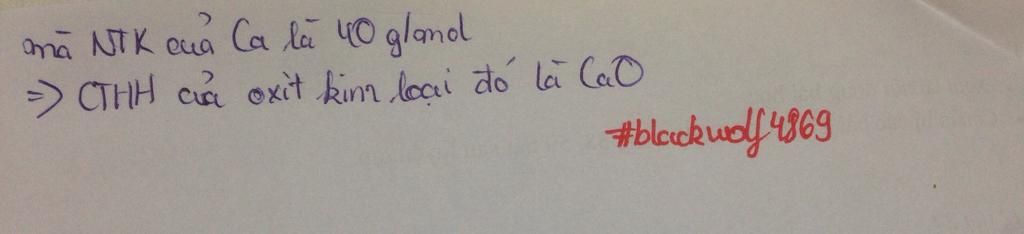 mà NTK của Ca là 40 g/mol
=> CTHH của oxit kim loại đó là CaO
#blackwolf4869